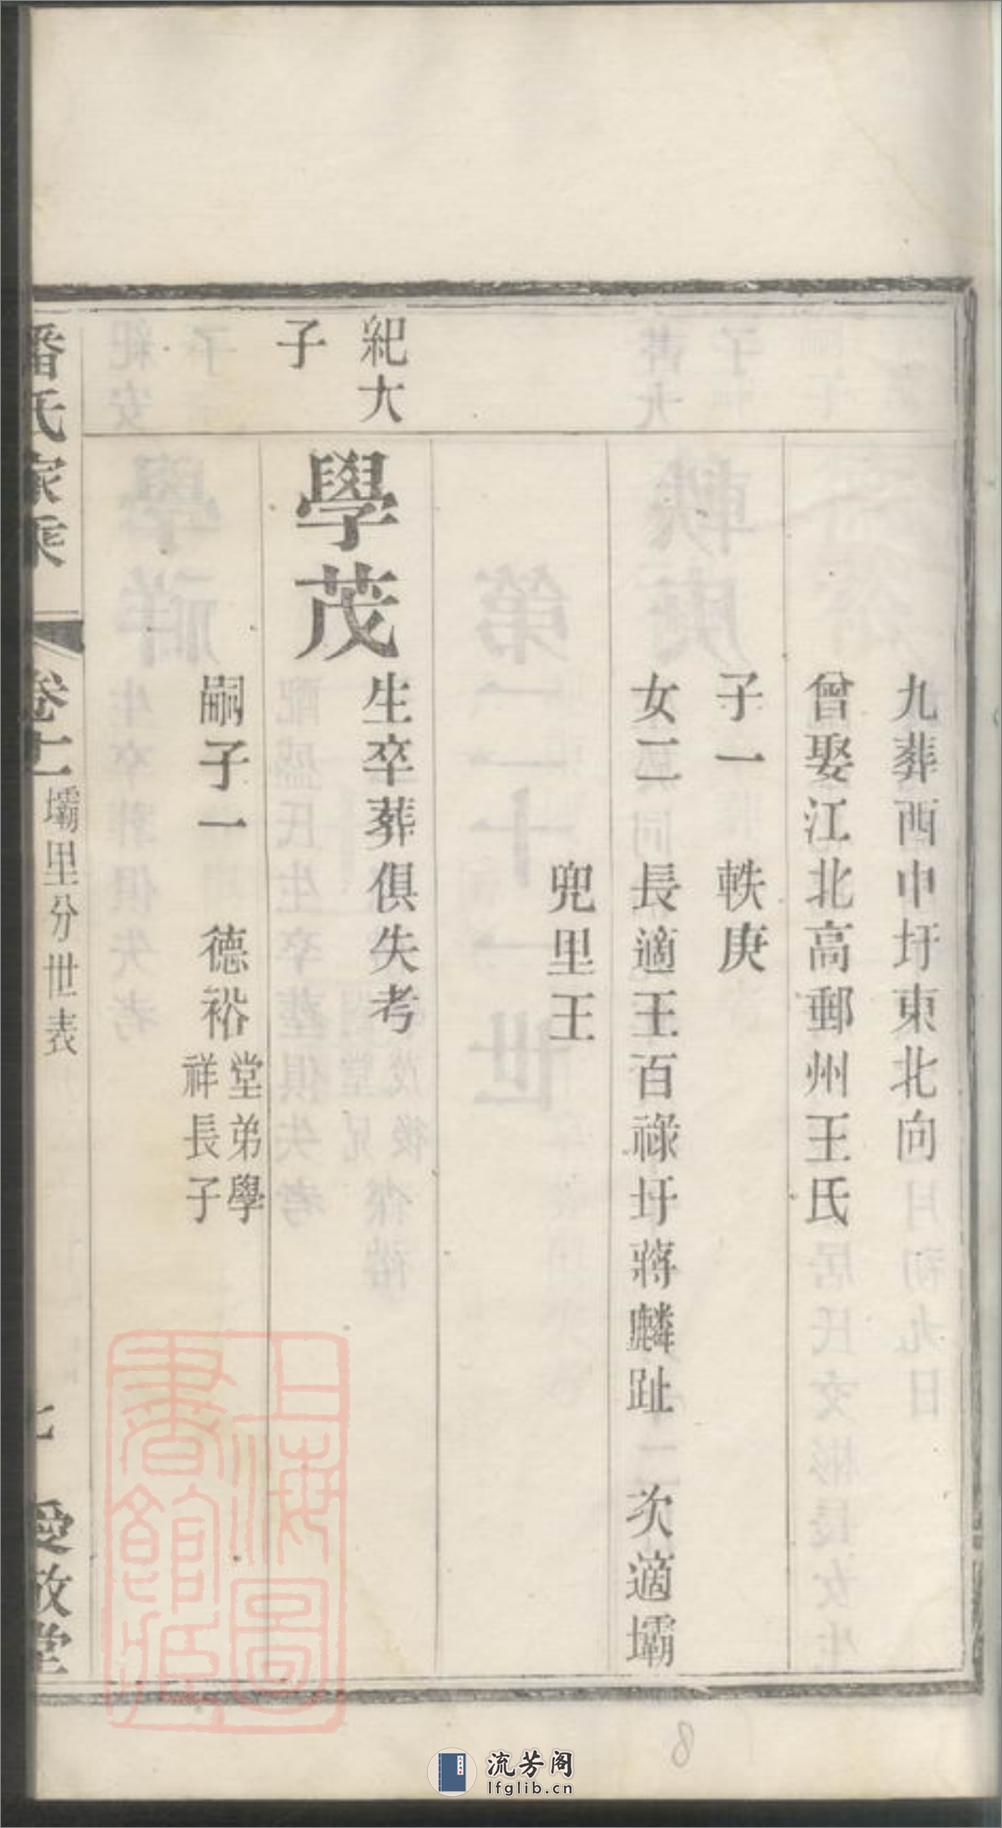 九葬西申圩東北向
曾娶江北高郵州王氏
子一　軼庚
女二　長適王百祿圩蔣麟趾　次適壩
兜里王
紀大
子
學茂
生卒葬俱失考
嗣子一　德裕堂弟學
祥長子
潘氏家乘
卷十一
壩里分世表
七
愛敬堂
上海圖
書館藏
8
流芳阁
lfglib.cn